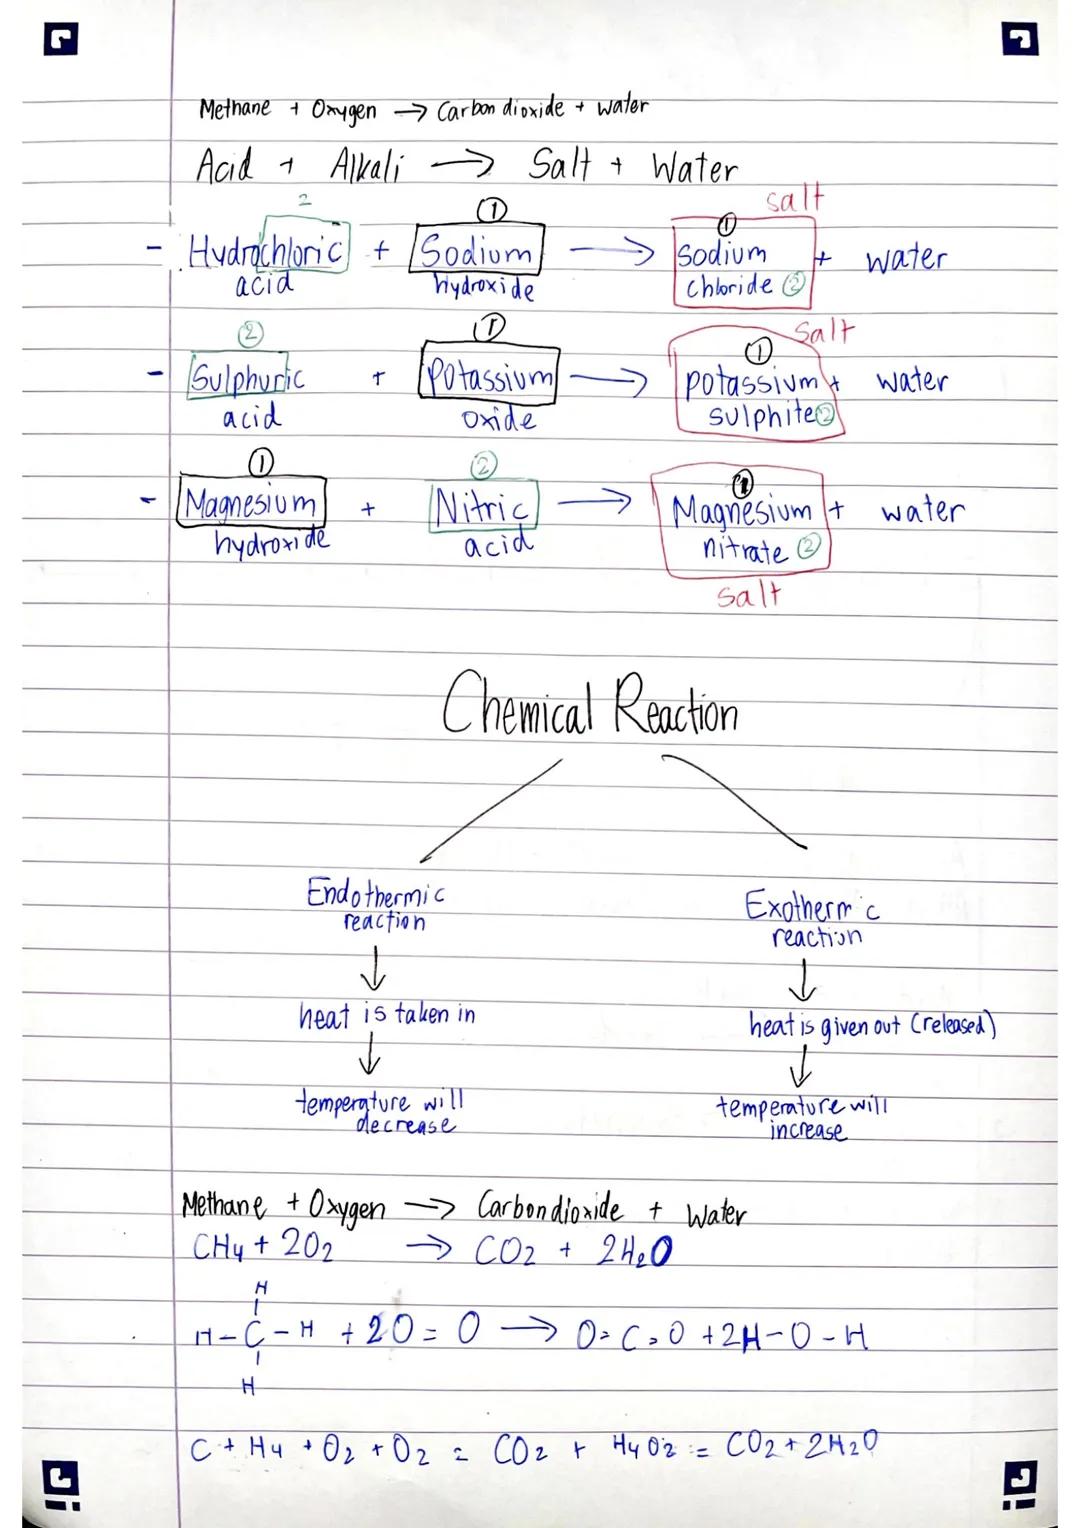 Methane + Oxygen → Carbon dioxide + water
Acid + Alkali → Salt + Water
salt
2 ① ①
- Hydrochloric + Sodium → sodium + water
acid hydroxide chloride ②
Salt
② ① ①
- Sulphuric + Potassium → potassium + water
acid oxide sulphite ②
① ② ①
- Magnesium + Nitric → Magnesium + water
hydroxide acid nitrate ②
salt
Chemical Reaction
Endothermic
reaction
Exothermic
reaction
↓ ↓
heat is taken in
heat is given out (released)
↓ ↓
temperature will
decrease
temperature will
increase
Methane + Oxygen → Carbondioxide + Water
CH4 + 2O2 → CO2 + 2H2O
H
|
H-C-H + 2O=O → O=C=O + 2H-O-H
|
H
C + H4 + O2 + O2 = CO2 + H4O2 = CO2 + 2H2O